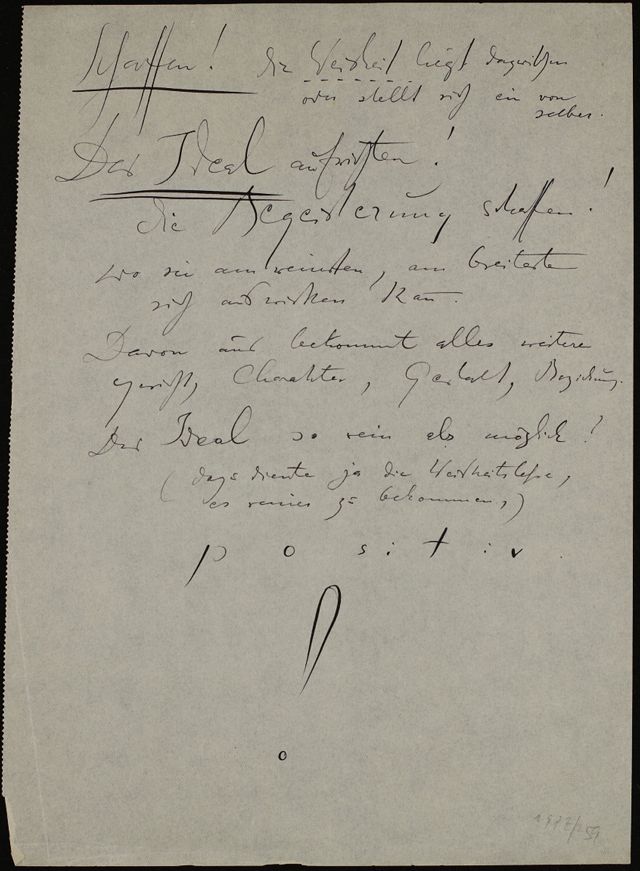 Schaffen! die Weisheit liegt dazwischen
oder stellt sich ein von
selber.
Das Ideal aufrichten!
die Begeisterung schaffen!
wo sie am reinsten, am breitesten
sich auswirken kann.
Davon aus bekommt alles weitere
Gewicht, Charakter, Gestalt, Beziehung.
Das Ideal so rein als möglich!
(dazu diente ja die Weisheitslehre,
es reiner zu bekommen,)
positiv
!